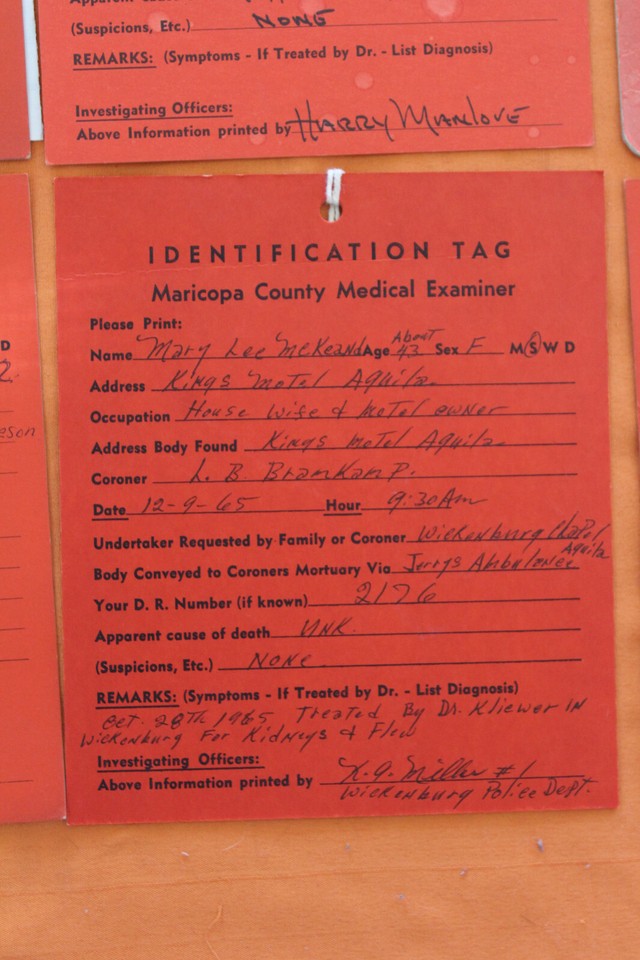 (Suspicions, Etc.) NONE
REMARKS: (Symptoms - If Treated by Dr. - List Diagnosis)
Investigating Officers:
Above Information printed by HARRY MANLOVE
D
2.
eson
IDENTIFICATION TAG
Maricopa County Medical Examiner
Please Print:
Name Mary Lee McKeand Age About 43 Sex F M S W D
Address Kings Motel Aguila
Occupation House wife & Motel owner
Address Body Found Kings Motel Aguila
Coroner L. B.
Date 12-9-65 Hour 9:30 Am
Undertaker Requested by Family or Coroner Wickenburg Chapel
Aguila
Body Conveyed to Coroners Mortuary Via Jerrys Ambulance
Your D. R. Number (if known) 2176
Apparent cause of death UNK.
(Suspicions, Etc.) None
REMARKS: (Symptoms - If Treated by Dr. - List Diagnosis)
Oct. 28TH 1965 Treated By Dr. Kliewer IN
Wickenburg For Kidneys & Flew
Investigating Officers:
Above Information printed by Miller #1
Wickenburg Police Dept.